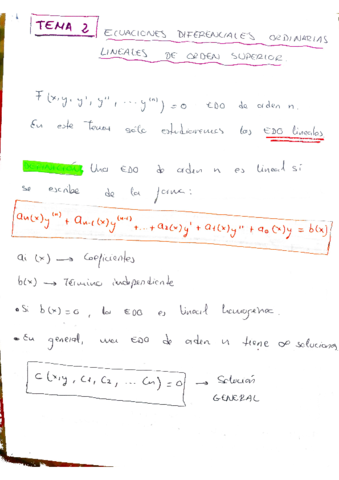 TEMA 2 ECUACIONES DIFERENCIALES ORDINARIAS
LINEALES DE ORDEN SUPERIOR
F(x, y, y', y'', ... y⁽ⁿ⁾) = 0 EDO de orden n.
En este tema sólo estudiaremos las EDO lineales
Una EDO de orden n es lineal si
se escribe de la forma:
aₙ(x)y⁽ⁿ⁾ + aₙ₋₁(x)y⁽ⁿ⁻¹⁾ + ... + a₂(x)y' + a₁(x)y'' + a₀(x)y = b(x)
aᵢ(x) → Coeficientes
b(x) → Término independiente
• Si b(x) = 0, la EDO es lineal homogénea.
• En general, una EDO de orden n tiene ∞ soluciones
C(x, y, C₁, C₂, ... Cn) = 0 → Solución
GENERAL